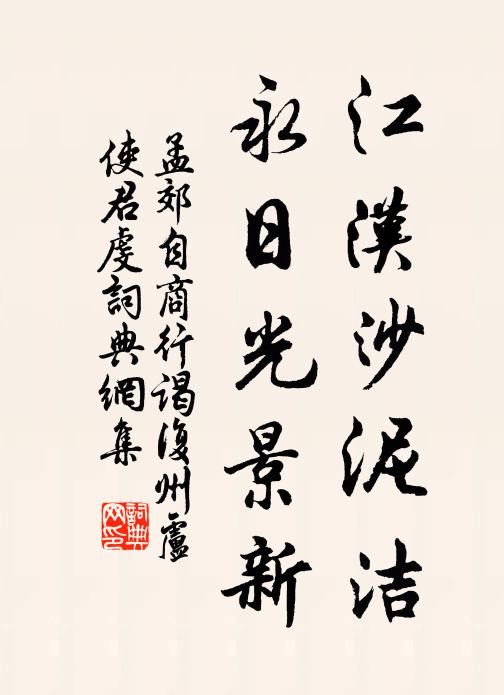 江漢沙泥洁
永日光景新
孟郊自商行謁復州盧
使君虔詞典網集
詞典
网印